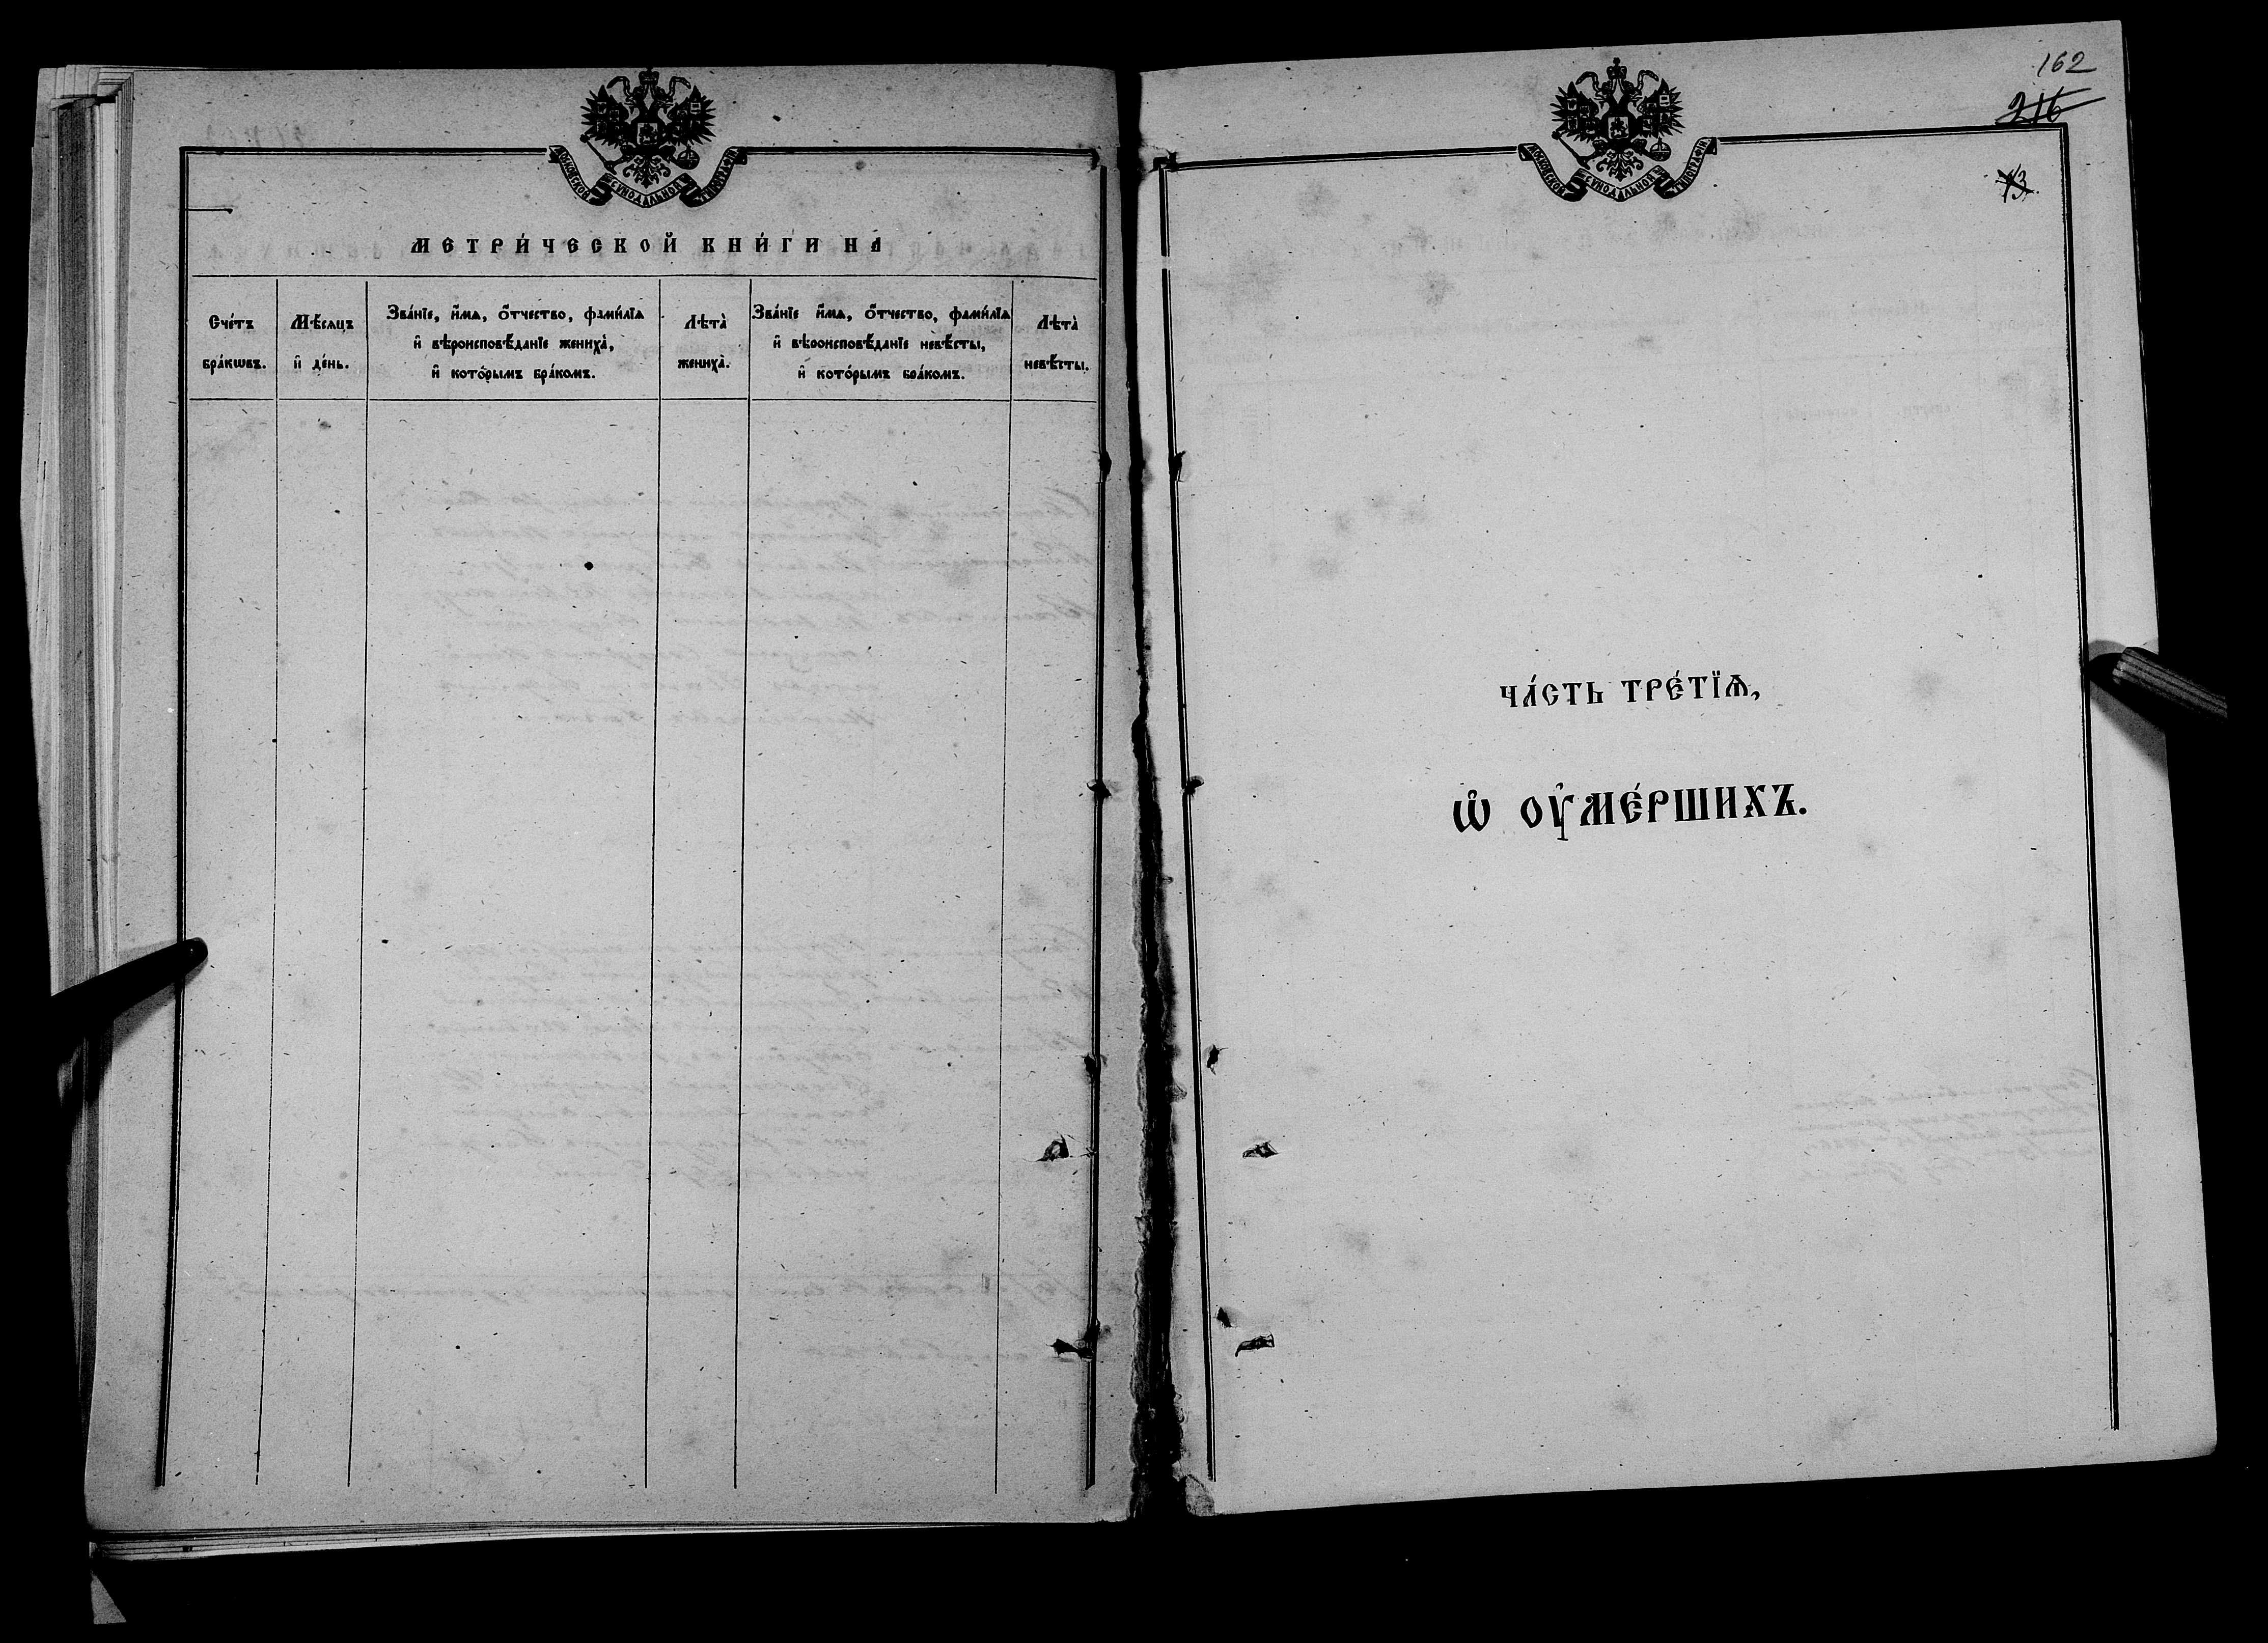 МОСКОВСКОЙ СѴНОДАЛЬНОЙ ТИПОГРАФІИ
МЕТРИ́ЧЕСКОЙ КНИ́ГИ НА
Сче́тъ
бра́кѡвъ.
Мѣ́сяцъ
и҆ де́нь.
Зва́нїе, и҆́мѧ, ѻ҆́тчество, фами́лїѧ
и҆ вѣроисповѣ́данїе жениха̀,
и҆ кото́рымъ бра́комъ.
Лѣта̀
жениха̀.
Зва́нїе и҆́мѧ, ѻ҆́тчество, фами́лїѧ
и҆ вѣроисповѣ́данїе невѣ́сты,
и҆ кото́рымъ бра́комъ.
Лѣта̀
невѣ́сты.
162
216
МОСКОВСКОЙ СѴНОДАЛЬНОЙ ТИПОГРАФІИ
ЧА́СТЬ ТРЕ́ТЇѦ,
Ѡ҆ ОУ҆МЕ́РШИХЪ.